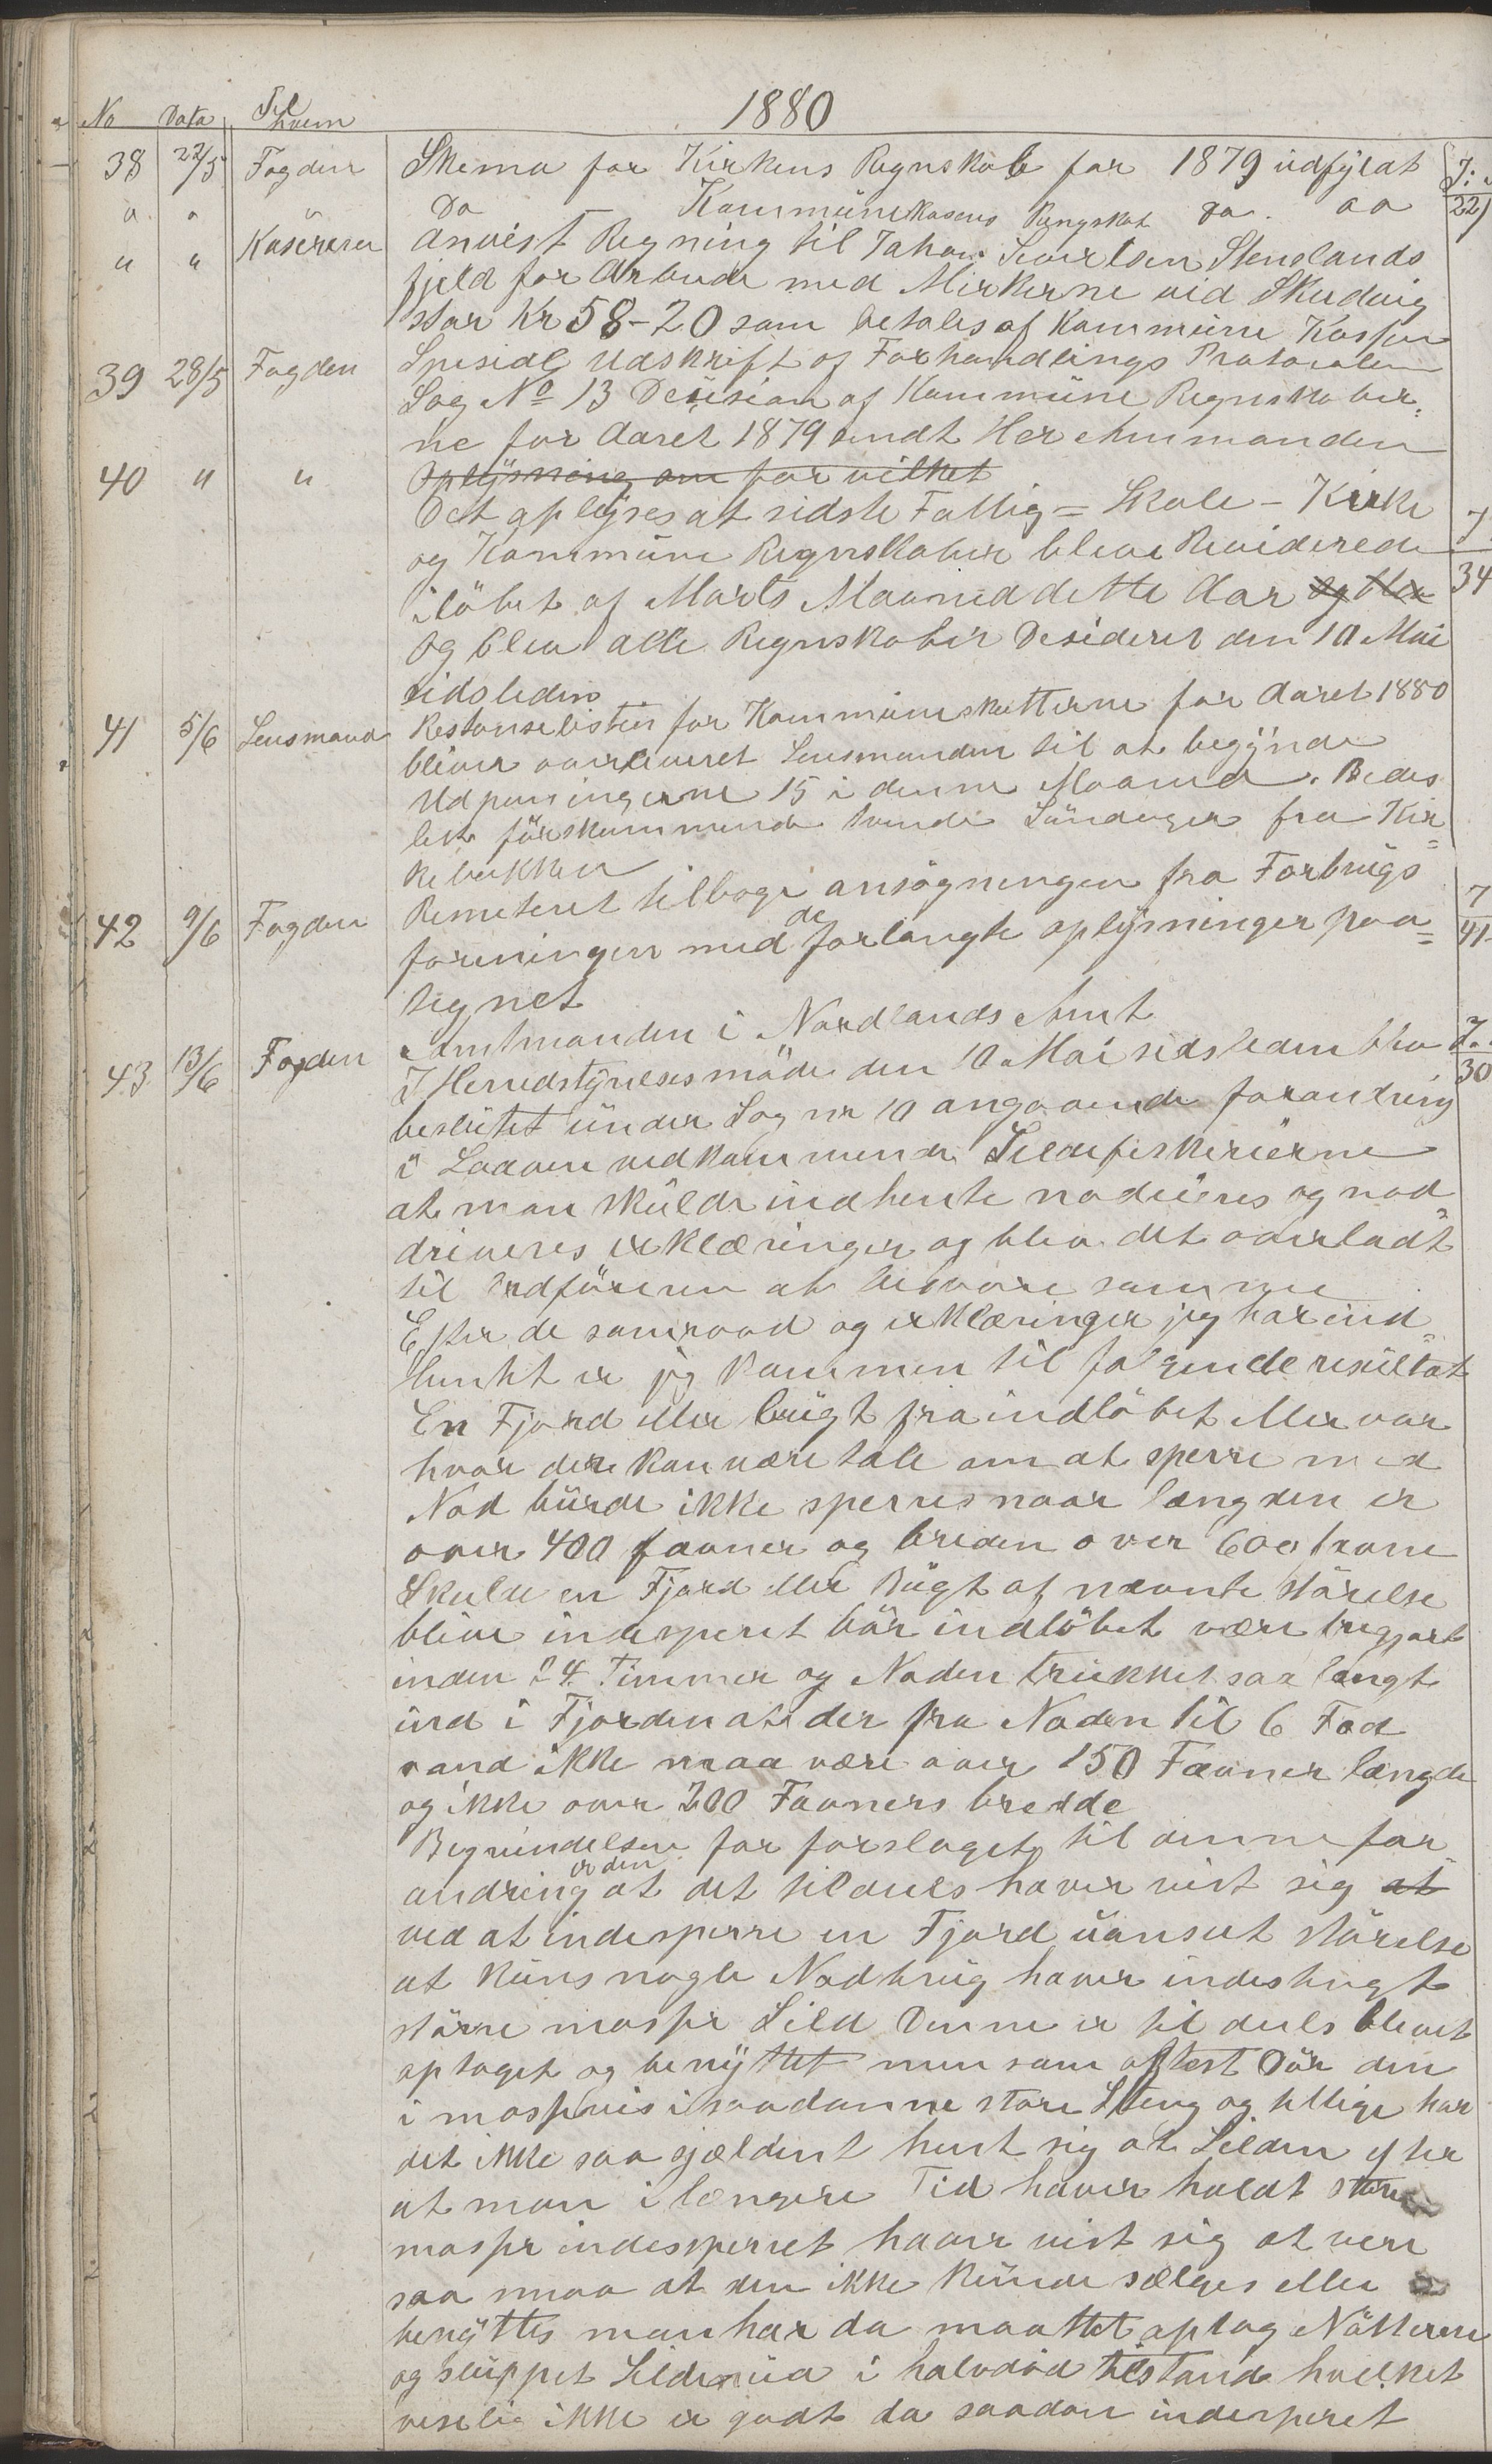 1880
No Data Til hvem
38 22/5 Fogden Skema for Kirkens Regnskab for 1879 udfyldt J:
" " Do Kommunekasens Rengskab Do. Do 22/
" " Kaserer Anvist Regning til Johan Sivertsen Stenslands
fjeld for Arbeide med Mirkerne ved Skudvig
stor Kr 58-20 som betales af Kommune Kassen
39 28/5 Fogden Spesiel Udskrift af Forhandlings Protocolen
Sag No 13 Desision af Kommune Regnskaber,
ne for Aaret 1879 sendt Her Amtmanden
40 " " Oplysning om for vilket
Det oplyses at sidste Fattig = Skole - Kirke
og Kommune Regnskaber bleve Reviderede 7
ilöbet af Marts Maaned dette Aar og blev 34
og blev alle Regnskaber Desideret den 10 Mai
sidsleden
41 5/6 Lensmand Restanselisten for Kommuneskatterne for Aaret 1880
bliver overleveret Lensmanden til at begynde
Udpaningerne 15 i denne Maaned. Bedes
lest förskommende tvende Söndager fra Kir=
kebakken
42 9/6 Fogden Remiteret tilbage ansögningen fra Forbrugs 7
foreningen med de forlangte oplysninger paa= 41
tegnet
Amtmanden i Nordlands Amt
43 13/6 Fogden I Herredstyrelsesmöde den 10 Mai sidsleden blev J.
besluttet under Sag nr 10 angaaende forandring 30
i Lovven vedkommende Sildefiskerierne
at man skulde indhente nodeieres og nod
driveres erklæringer og blev det overladt
til Ordföreren at besvare samme
Efter de samraad og erklæringer jeg har ind=
hentet er jeg kommen til fölgende resultat
En Fjord eller bugt fra indlöbet eller vor
hvor dere kan være tale om at sperre med
Nod burde ikke sperres naar længden er
over 400 favner og breden over 600 favne
Skulde en Fjord eller Bugt af nevnte störelse
blive indesperet bör indlöbet være frigjort
inden 24 Timmer og Noden trukket saa langt
ind i Fjorden at der fra Noden til 6 Fod
vand ikke maa være over 150 Favner længde
og ikke over 200 Favners bredde
Begrundelsen for forslaget til denne for
andring er den at det tildeels haver vist sig at
ved at indesperre en Fjord uanseet störelse
at kuns nogle Nodbrug haver indestengt
större masse Sild Denne er til deels blevet
optaget og benyttet men som oftest Dör den
i massevis i saadanne store Steng og tillige har
det ikke saa sjældent hent sig at Silden efter
at man i længere Tid haver holdt store
masse indessperret haver vist sig at vere
saa smaa at den ikke kunde sælges eller
benyttes man har da maattet optag Nötterne
og sluppet Silden ud i halvdöd tilstand hvilket
viselig ikke er godt da saadan indesperet